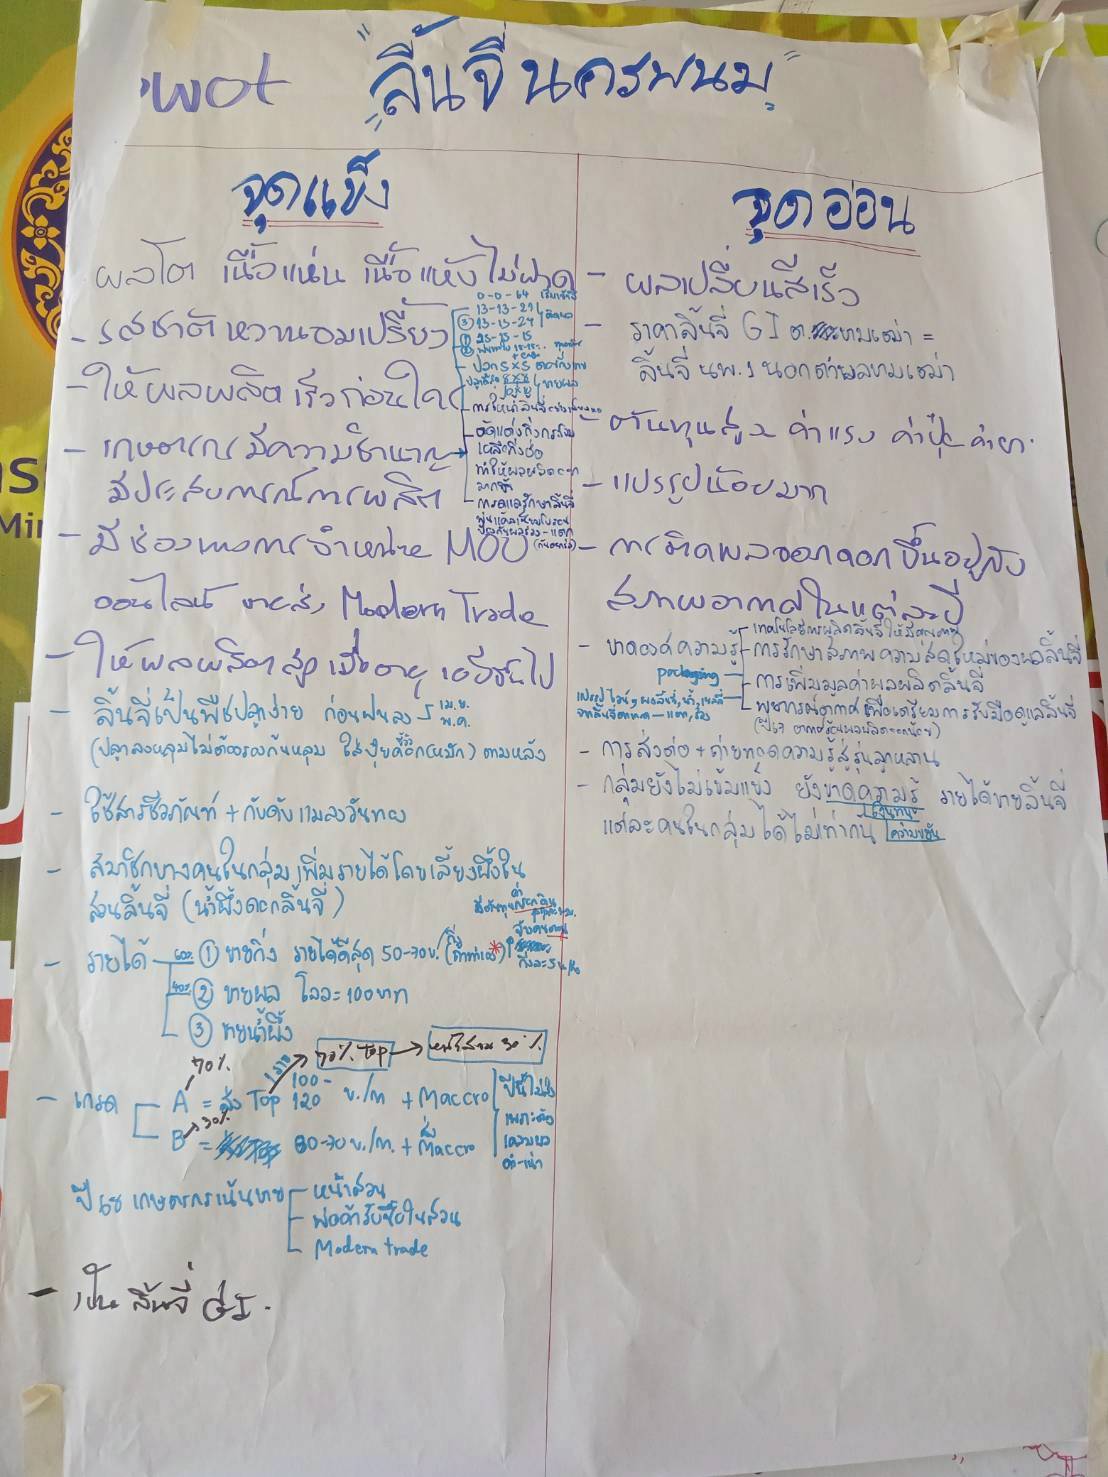 swot
"ลิ้นจี่นครพนม"
จุดแข็ง
ผลโต เนื้อแน่น เนื้อแห้ง ไม่ฝาด
- รสชาติหวานอมเปรี้ยว
0-0-64
13-13-21
③ 13-13-24
① 25-15-15
- ปลูก 5×5
- ให้ผลผลิตเร็วก่อนใคร
- เกษตรกรมีความชำนาญ
มีประสบการณ์การผลิต
- ตัดแต่งกิ่งทรงพุ่ม
เหลือกิ่งข้อ
ทำให้ผลผลิตดก
- การดูแลรักษาลิ้นจี่
พ่นแคลเซียมโบรอน
- มีช่องทางการจำหน่าย MOU
ออนไลน์ ขายส่ง Modern Trade
- ให้ผลผลิตสูงเมื่ออายุ เฉลี่ยขึ้นไป
- ลิ้นจี่เป็นพืชปลูกง่าย ก่อนฝนลง เม.ย. พ.ค.
(ปลูกลงหลุมไม่ต้องรองก้นหลุม ใส่ปุ๋ยคอก(หมัก) ตามหลัง
- ใช้สารชีวภัณฑ์ + กับดักแมลงวันทอง
- สมาชิกบางคนในกลุ่มเพิ่มรายได้โดยเลี้ยงผึ้งใน
สวนลิ้นจี่ (น้ำผึ้งดอกลิ้นจี่)
- รายได้ 60% ① ขายกิ่ง รายได้ดีสุด 50-70 บ.
40% ② ขายผล โลละ 100 บาท
③ ขายน้ำผึ้ง
70% Top → 30%
70%
- เกรด A = ส่ง Top 100-120 บ./ก + Maccro
30%
B = 60-70 บ./ก. + ส่ง Maccro
ปี 68 เกษตรกรเน้นขาย - หน้าสวน
- พ่อค้ารับซื้อในสวน
- Modern trade
- เป็นลิ้นจี่ GI.
จุดอ่อน
- ผลเปลี่ยนสีเร็ว
- ราคาลิ้นจี่ GI ต.ขามเฒ่า =
ลิ้นจี่ นพ.1 นอกตำบลขามเฒ่า
- ต้นทุนสูง ค่าแรง ค่าปุ๋ย ค่ายา.
- แปรรูปน้อยมาก
- การติดผลออกดอกขึ้นอยู่กับ
สภาพอากาศในแต่ละปี
- ขาดองค์ความรู้ - เทคโนโลยีการผลิตลิ้นจี่ให้มีคุณภาพ
- การรักษาสภาพความสดใหม่ของผลลิ้นจี่
packaging
- การเพิ่มมูลค่าผลผลิตลิ้นจี่
แปรรูป ไวน์, ผลลิ้นจี่, น้ำ, เยลลี่
- พยากรณ์อากาศ เพื่อเตรียมการรับมือดูแลลิ้นจี่
- การส่งต่อ + ถ่ายทอดความรู้สู่รุ่นลูกหลาน
- กลุ่มยังไม่เข้มแข็ง ยังขาดความรู้ รายได้ขายลิ้นจี่
แต่ละคนในกลุ่มได้ไม่เท่ากัน
เงินทุน
ความขยัน